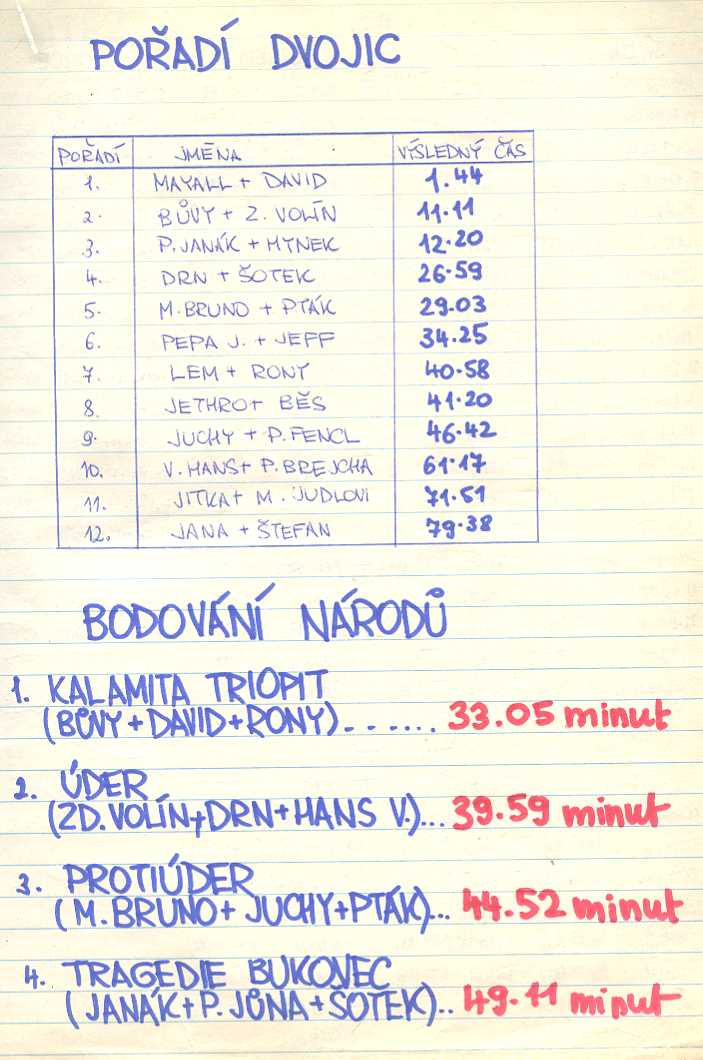 POŘADÍ DVOJIC
POŘADÍ JMÉNA VÝSLEDNÝ ČAS
1. MAYALL + DAVID 1.44
2. BŮVY + Z. VOLÍN 11.11
3. P. JANÁK + HYNEK 12.20
4. DRN + ŠOTEK 26.59
5. M. BRUNO + PTÁK 29.03
6. PEPA J. + JEFF 34.25
7. LEM + RONY 40.58
8. JETHRO + BĚS 41.20
9. JUCHY + P. FENCL 46.42
10. V. HANS + P. BREJCHA 61.17
11. JITKA + M. JUDLOVI 71.51
12. JANA + ŠTEFAN 79.38
BODOVÁNÍ NÁRODŮ
1. KALAMITA TRIOPIT
(BŮVY + DAVID + RONY)...... 33.05 minut
2. ÚDER
(ZD. VOLÍN + DRN + HANS V.)... 39.59 minut
3. PROTIÚDER
(M. BRUNO + JUCHY + PTÁK)... 44.52 minut
4. TRAGEDIE BUKOVEC
(JANÁK + P. JŮNA + ŠOTEK).. 49.11 minut